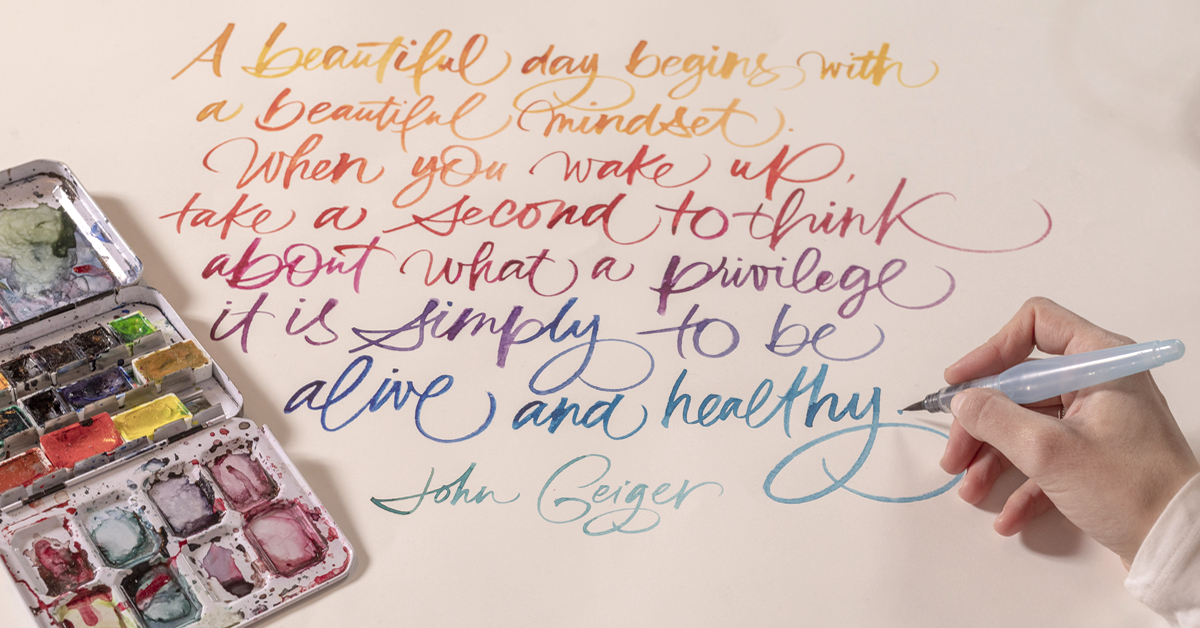 A beautiful day begins with
a beautiful mindset.
When you wake up,
take a second to think
about what a privilege
it is simply to be
alive and healthy.
John Geiger